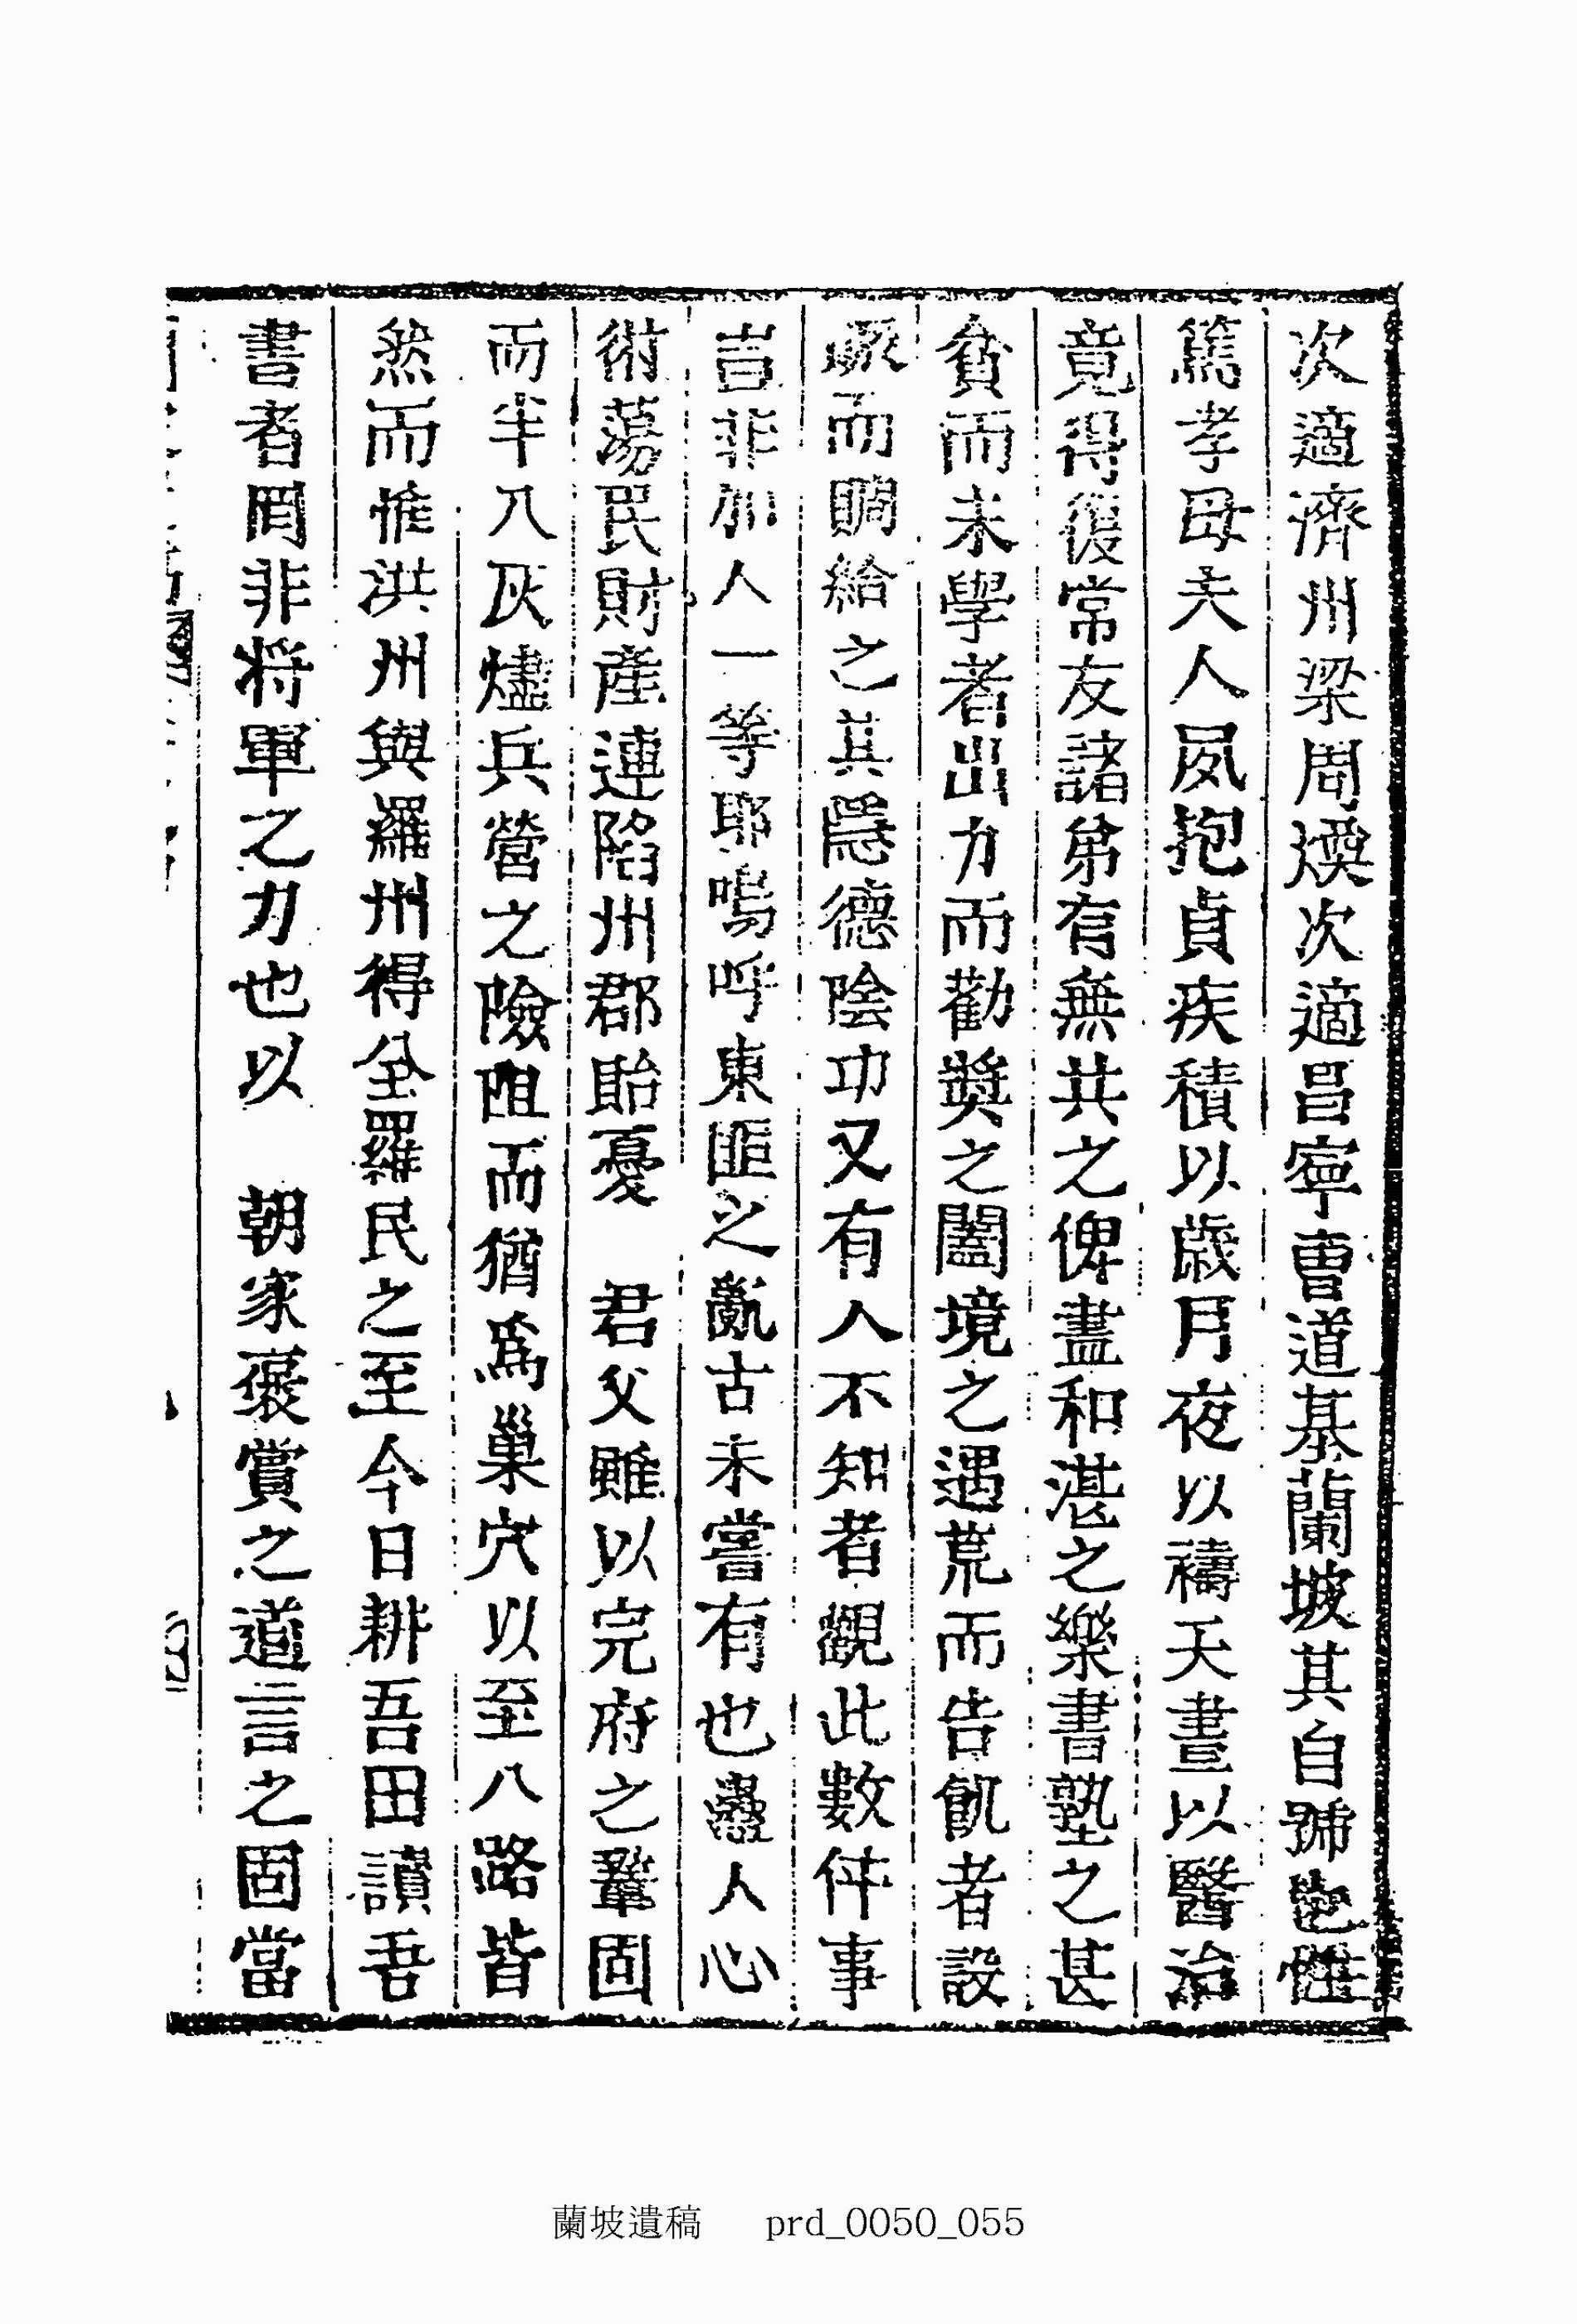 次適濟州梁周煐次適昌寧曺道基蘭坡其自號也性
篤孝母夫人夙抱貞疾積以歲月夜以禱天晝以醫治
竟得復常友諸弟有無共之俾盡和湛之樂書塾之甚
貧而未學者出力而勸奬之闔境之遇荒而告飢者設
而賙給之其隱德陰功又有人不知者觀此數件事
豈非加人一等耶嗚呼東匪之亂古未嘗有也蠱人心
術蕩民財産連陷州郡貽憂 君父雖以完府之鞏固
而半入灰燼兵營之險阻而猶爲巢穴以至八路皆
然而惟洪州與羅州得全羅民之至今日耕吾田讀吾
書者罔非將軍之力也以 朝家褒賞之道言之固當
蘭坡遺稿 prd_0050_055